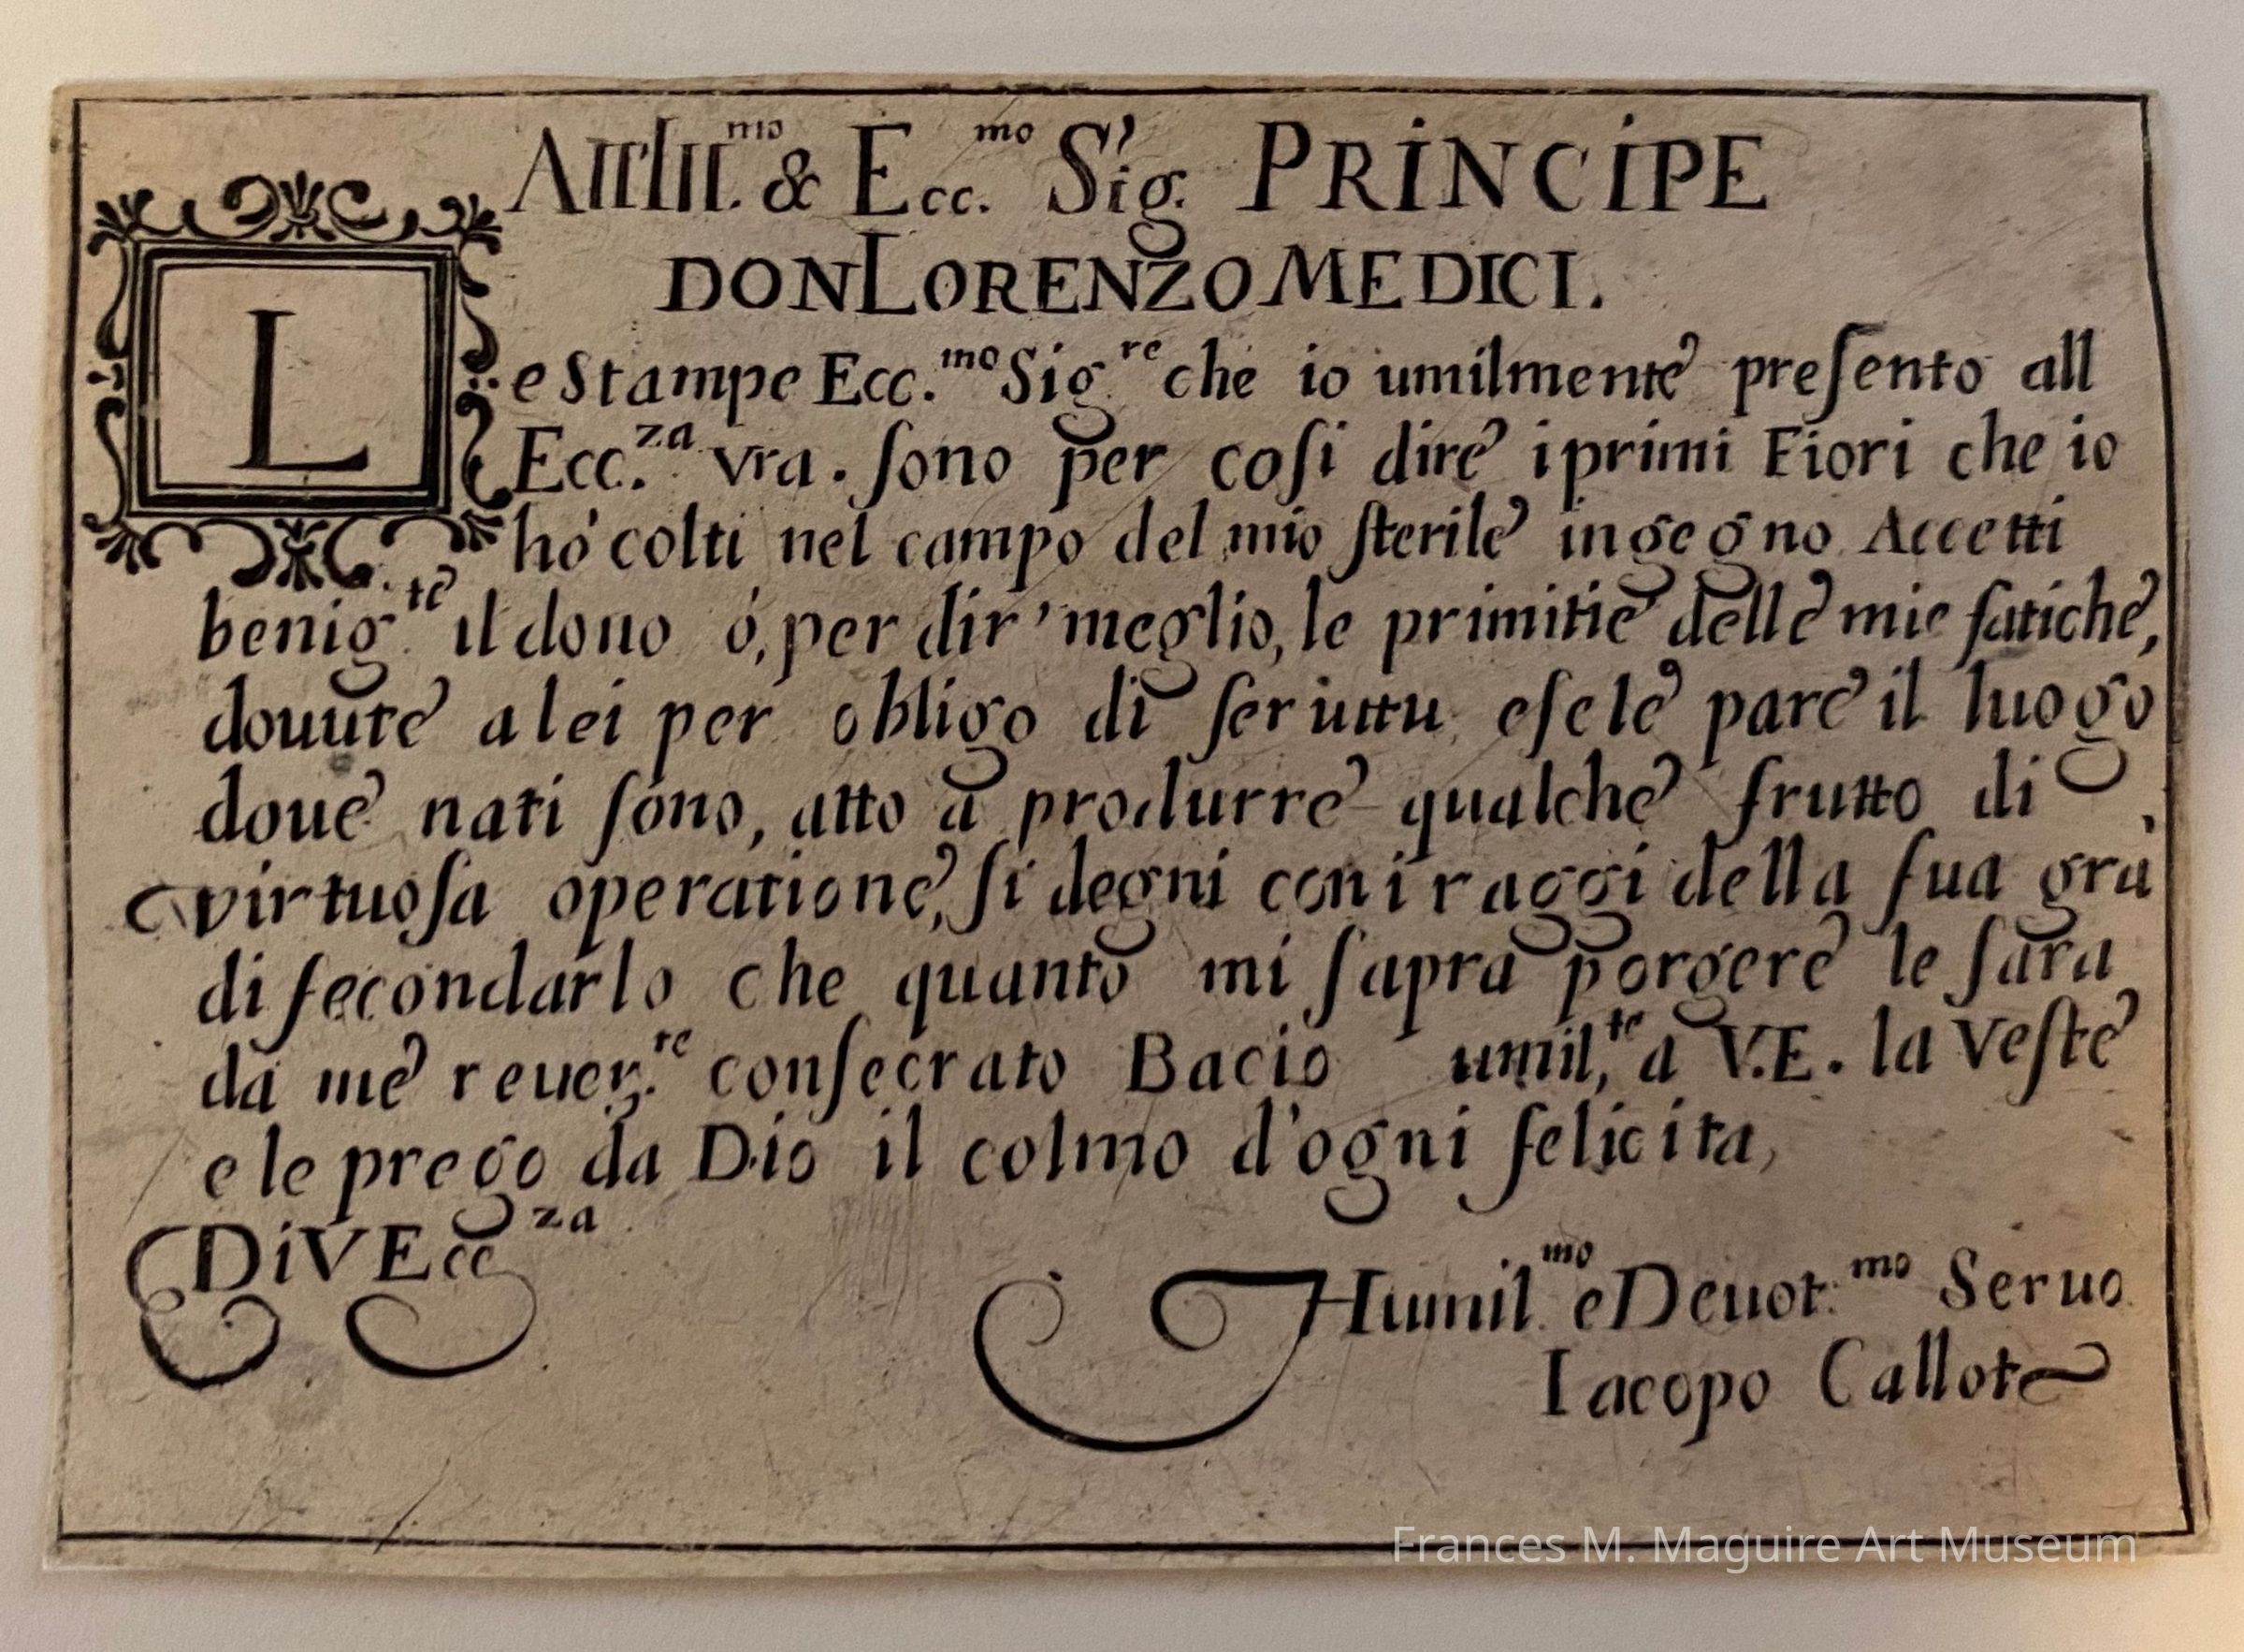 All Ill.mo & Ecc.mo Sig. PRINCIPE
DON LORENZO MEDICI.
Le Stampe Ecc.mo Sig.re che io umilmente preſento all
Ecc.za vra. ſono per coſi dire i primi Fiori che io
hò colti nel campo del mio ſterile ingegno Accetti
benig.te il dono ò, per dir' meglio, le primitie delle mie fatiche,
douute a lei per obligo di ſeruittu, e ſe le pare il luogo
doue nati ſono, atto à produrre qualche frutto di
virtuoſa operatione, ſi degni con i raggi della ſua gra,
di fecondarlo che quanto mi ſapra porgere le ſara
da me reuer.te conſecrato Bacio umil,te a V.E. la Veſte
e le prego da Dio il colmo d'ogni felicita,
Di V Ecc za
Humil.mo e Deuot.mo Seruo
Iacopo Callot
Frances M. Maguire Art Museum